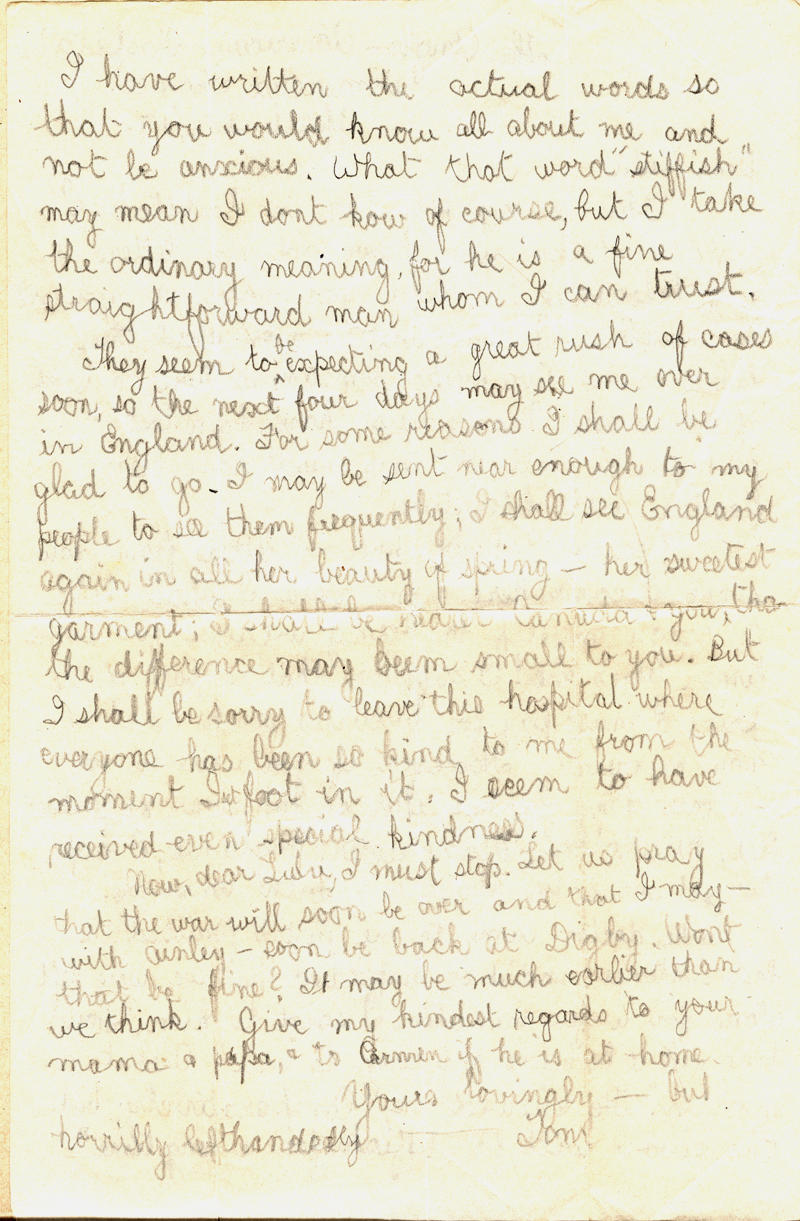 I have written the actual words so
that you would know all about me and
not be anxious. What that word "stiffish"
may mean I dont kow of course, but I take
the ordinary meaning, for he is a fine
straightforward man whom I can trust.
They seem to be expecting a great rush of cases
soon, so the next four days may see me over
in England. For some reasons I shall be
glad to go. I may be sent near enough to my
people to see them frequently; I shall see England
again in all her beauty of spring – her sweetest
garment; I shall be nearer Canada & you, tho
the difference may seem small to you. But
I shall be sorry to leave this hospital where
everyone has been so kind to me from the
moment I foot in it. I seem to have
received even special kindness.
Now, dear Lulu, I must stop. Let us pray
that the war will soon be over and that I may –
with ainley – soon be back at Digby. Wont
that be fine? It may be much earlier than
we think. Give my kindest regards to your
mama & papa, & to Carmen if he is at home.
Yours lovingly – but
horrilly lefthandedly Tom